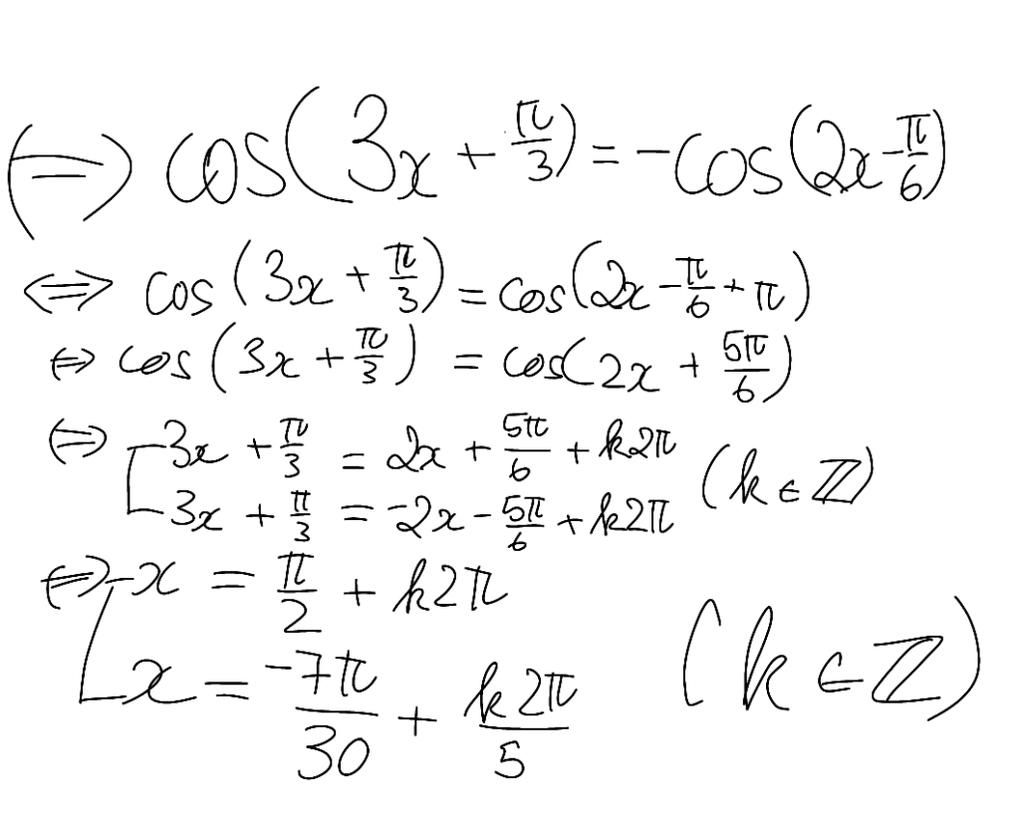 (=) cos(3x + π/3) = -cos(2x - π/6)
⇔ cos(3x + π/3) = cos(2x - π/6 + π)
⇔ cos(3x + π/3) = cos(2x + 5π/6)
⇔ [ 3x + π/3 = 2x + 5π/6 + k2π
3x + π/3 = -2x - 5π/6 + k2π (k ∈ ℤ)
⇔ [ x = π/2 + k2π
x = -7π/30 + k2π/5 (k ∈ ℤ)